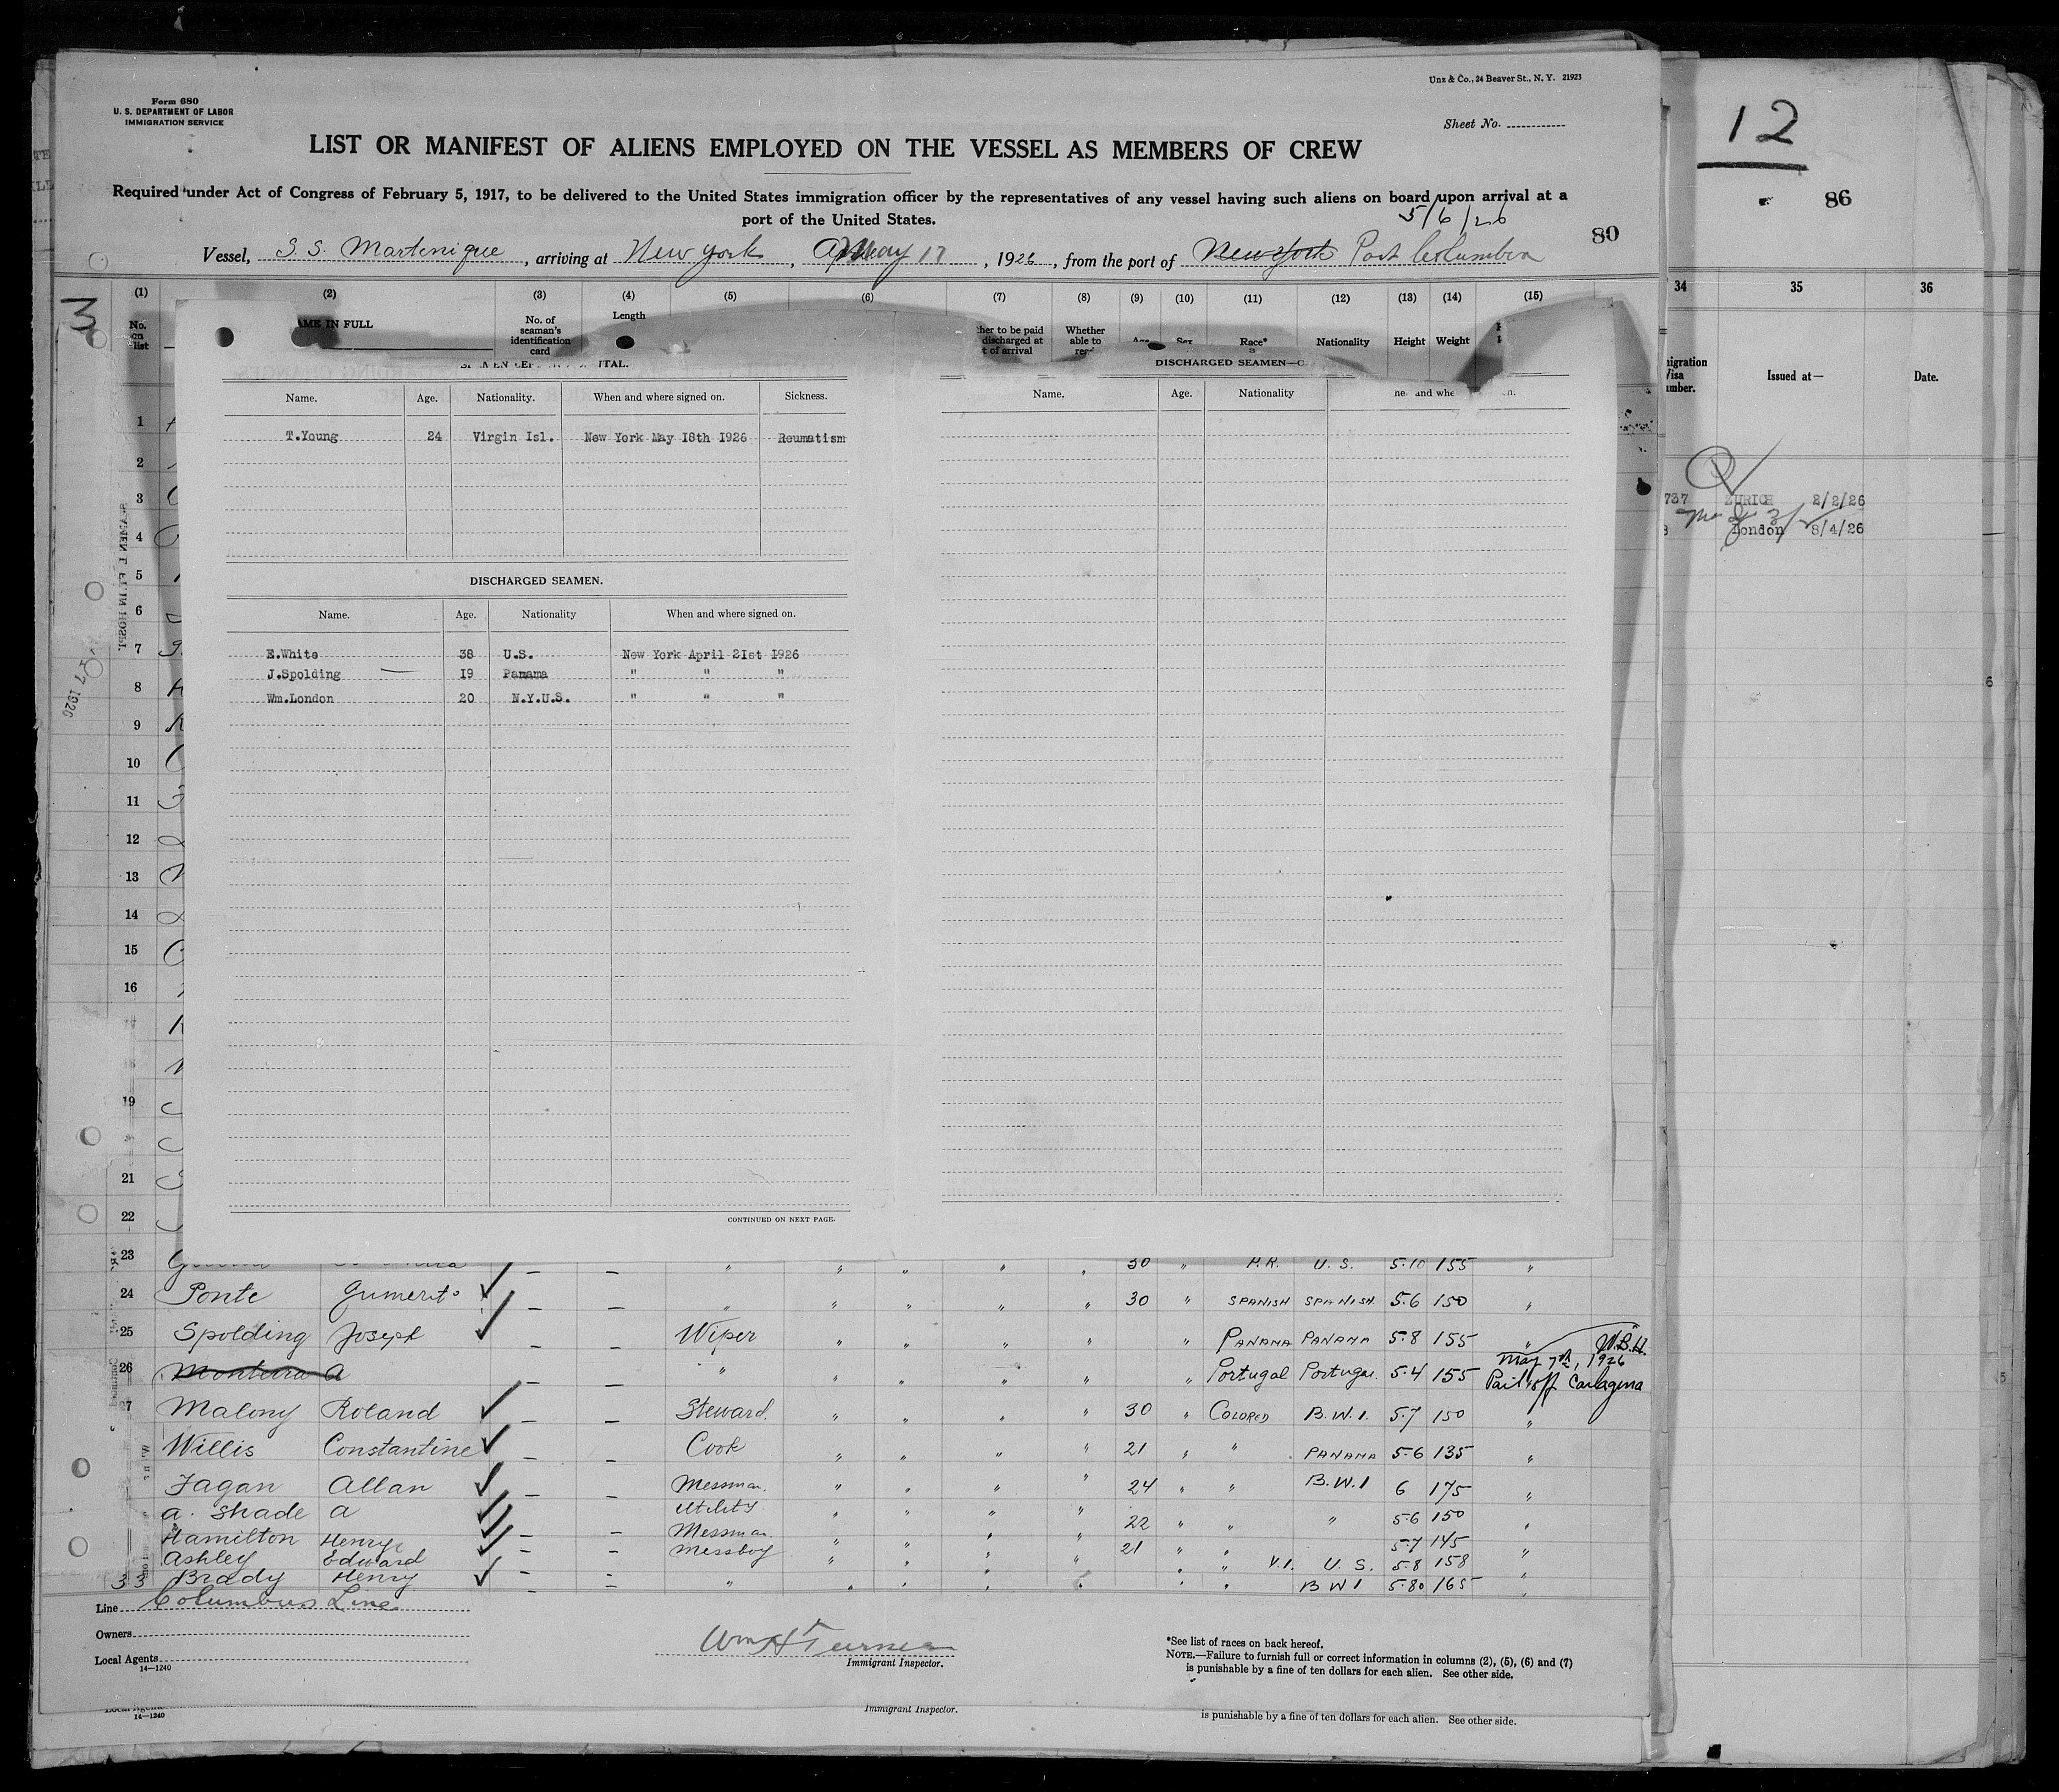 Unz & Co., 24 Beaver St., N. Y. 21923
Form 680
U. S. DEPARTMENT OF LABOR
IMMIGRATION SERVICE
Sheet No.
12
LIST OR MANIFEST OF ALIENS EMPLOYED ON THE VESSEL AS MEMBERS OF CREW
Required under Act of Congress of February 5, 1917, to be delivered to the United States immigration officer by the representatives of any vessel having such aliens on board upon arrival at a
port of the United States.
5/6/26
86
80
Vessel, S. S. Martenique, arriving at New York, May 17, 1926, from the port of New York Port Columbia
3
(1) (2) (3) (4) (5) (6) (7) (8) (9) (10) (11) (12) (13) (14) (15)
34 35 36
No. on list
AME IN FULL
No. of seaman's identification card
Length
her to be paid discharged at t of arrival
Whether able to
Race*
Nationality
Height
Weight
igration Visa umber.
Issued at—
Date.
DISCHARGED SEAMEN—C
Name. Age. Nationality. When and where signed on. Sickness.
Name. Age. Nationality
T.Young 24 Virgin Isl. New York May 18th 1926 Reumatism
737 ZURICH 2/2/26
London 8/4/26
DISCHARGED SEAMEN.
Name. Age. Nationality When and where signed on.
E.White 38 U.S. New York April 21st 1926
J.Spolding 19 Panama " " "
Wm.London 20 N.Y.U.S. " " "
1
2
3
4
5
6
7
8
9
10
11
12
13
14
15
16
19
21
22
CONTINUED ON NEXT PAGE.
23 30 " P.R. U. S. 5-10 155 "
24 Ponte Gumerito — — " " " " " 30 " SPANISH SPANISH 5-6 150 "
25 Spolding Joseph — — Wiper " " " " " PANAMA PANAMA 5-8 155 " W.B.H.
26 Monteira A — — " " " " " " Portugal Portugal 5-4 155 May 7th, 1926 Paid off Cartagena
27 Malony Roland — — Steward. " " " " 30 " COLORED B.W.I. 5-7 150 "
Willis Constantine — — Cook " " " " 21 " " PANAMA 5-6 135 "
Fagan Allan — — Messman. " " " " 24 " " B.W.I 6 175 "
A. Shade A Utility " " " " 22 " " " 5-6 150 "
Hamilton Henry — — Messman. " " " " 21 " " 5-7 145 "
Ashley Edward — — Messboy " " " " " " V.I. U. S. 5-8 158 "
33 Brady Henry — — " " " " " " " B W I 5-80 165 "
Line Columbus Line
Owners
Local Agents
14—1240
Wm H Turner
Immigrant Inspector.
*See list of races on back hereof.
NOTE.—Failure to furnish full or correct information in columns (2), (5), (6) and (7)
is punishable by a fine of ten dollars for each alien. See other side.
14—1240
Immigrant Inspector.
is punishable by a fine of ten dollars for each alien. See other side.